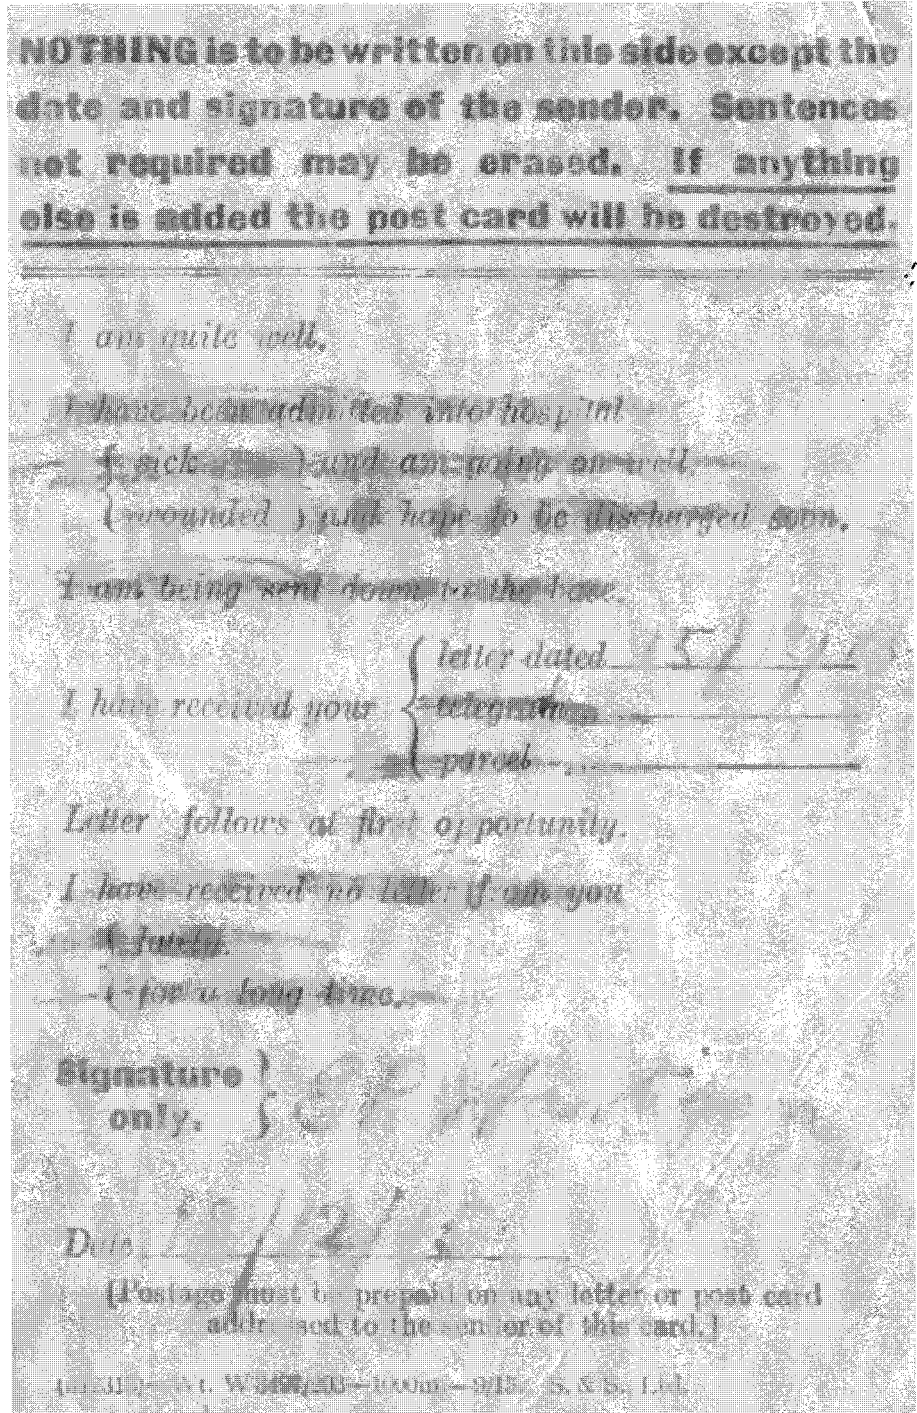 NOTHING is to be written on this side except the
date and signature of the sender. Sentences
not required may be erased. If anything
else is added the post card will be destroyed.
I am quite well.
I have been admitted into hospital
{ sick } and am going on well.
{ wounded } and hope to be discharged soon.
I am being sent down to the base.
{ letter dated
I have received your { telegram
{ parcel
Letter follows at first opportunity.
I have received no letter from you
{ lately.
{ for a long time.
Signature }
only. }
Date
[Postage must be prepaid on any letter or post card
addressed to the sender of this card.]
9/15. S. & S., Ltd.